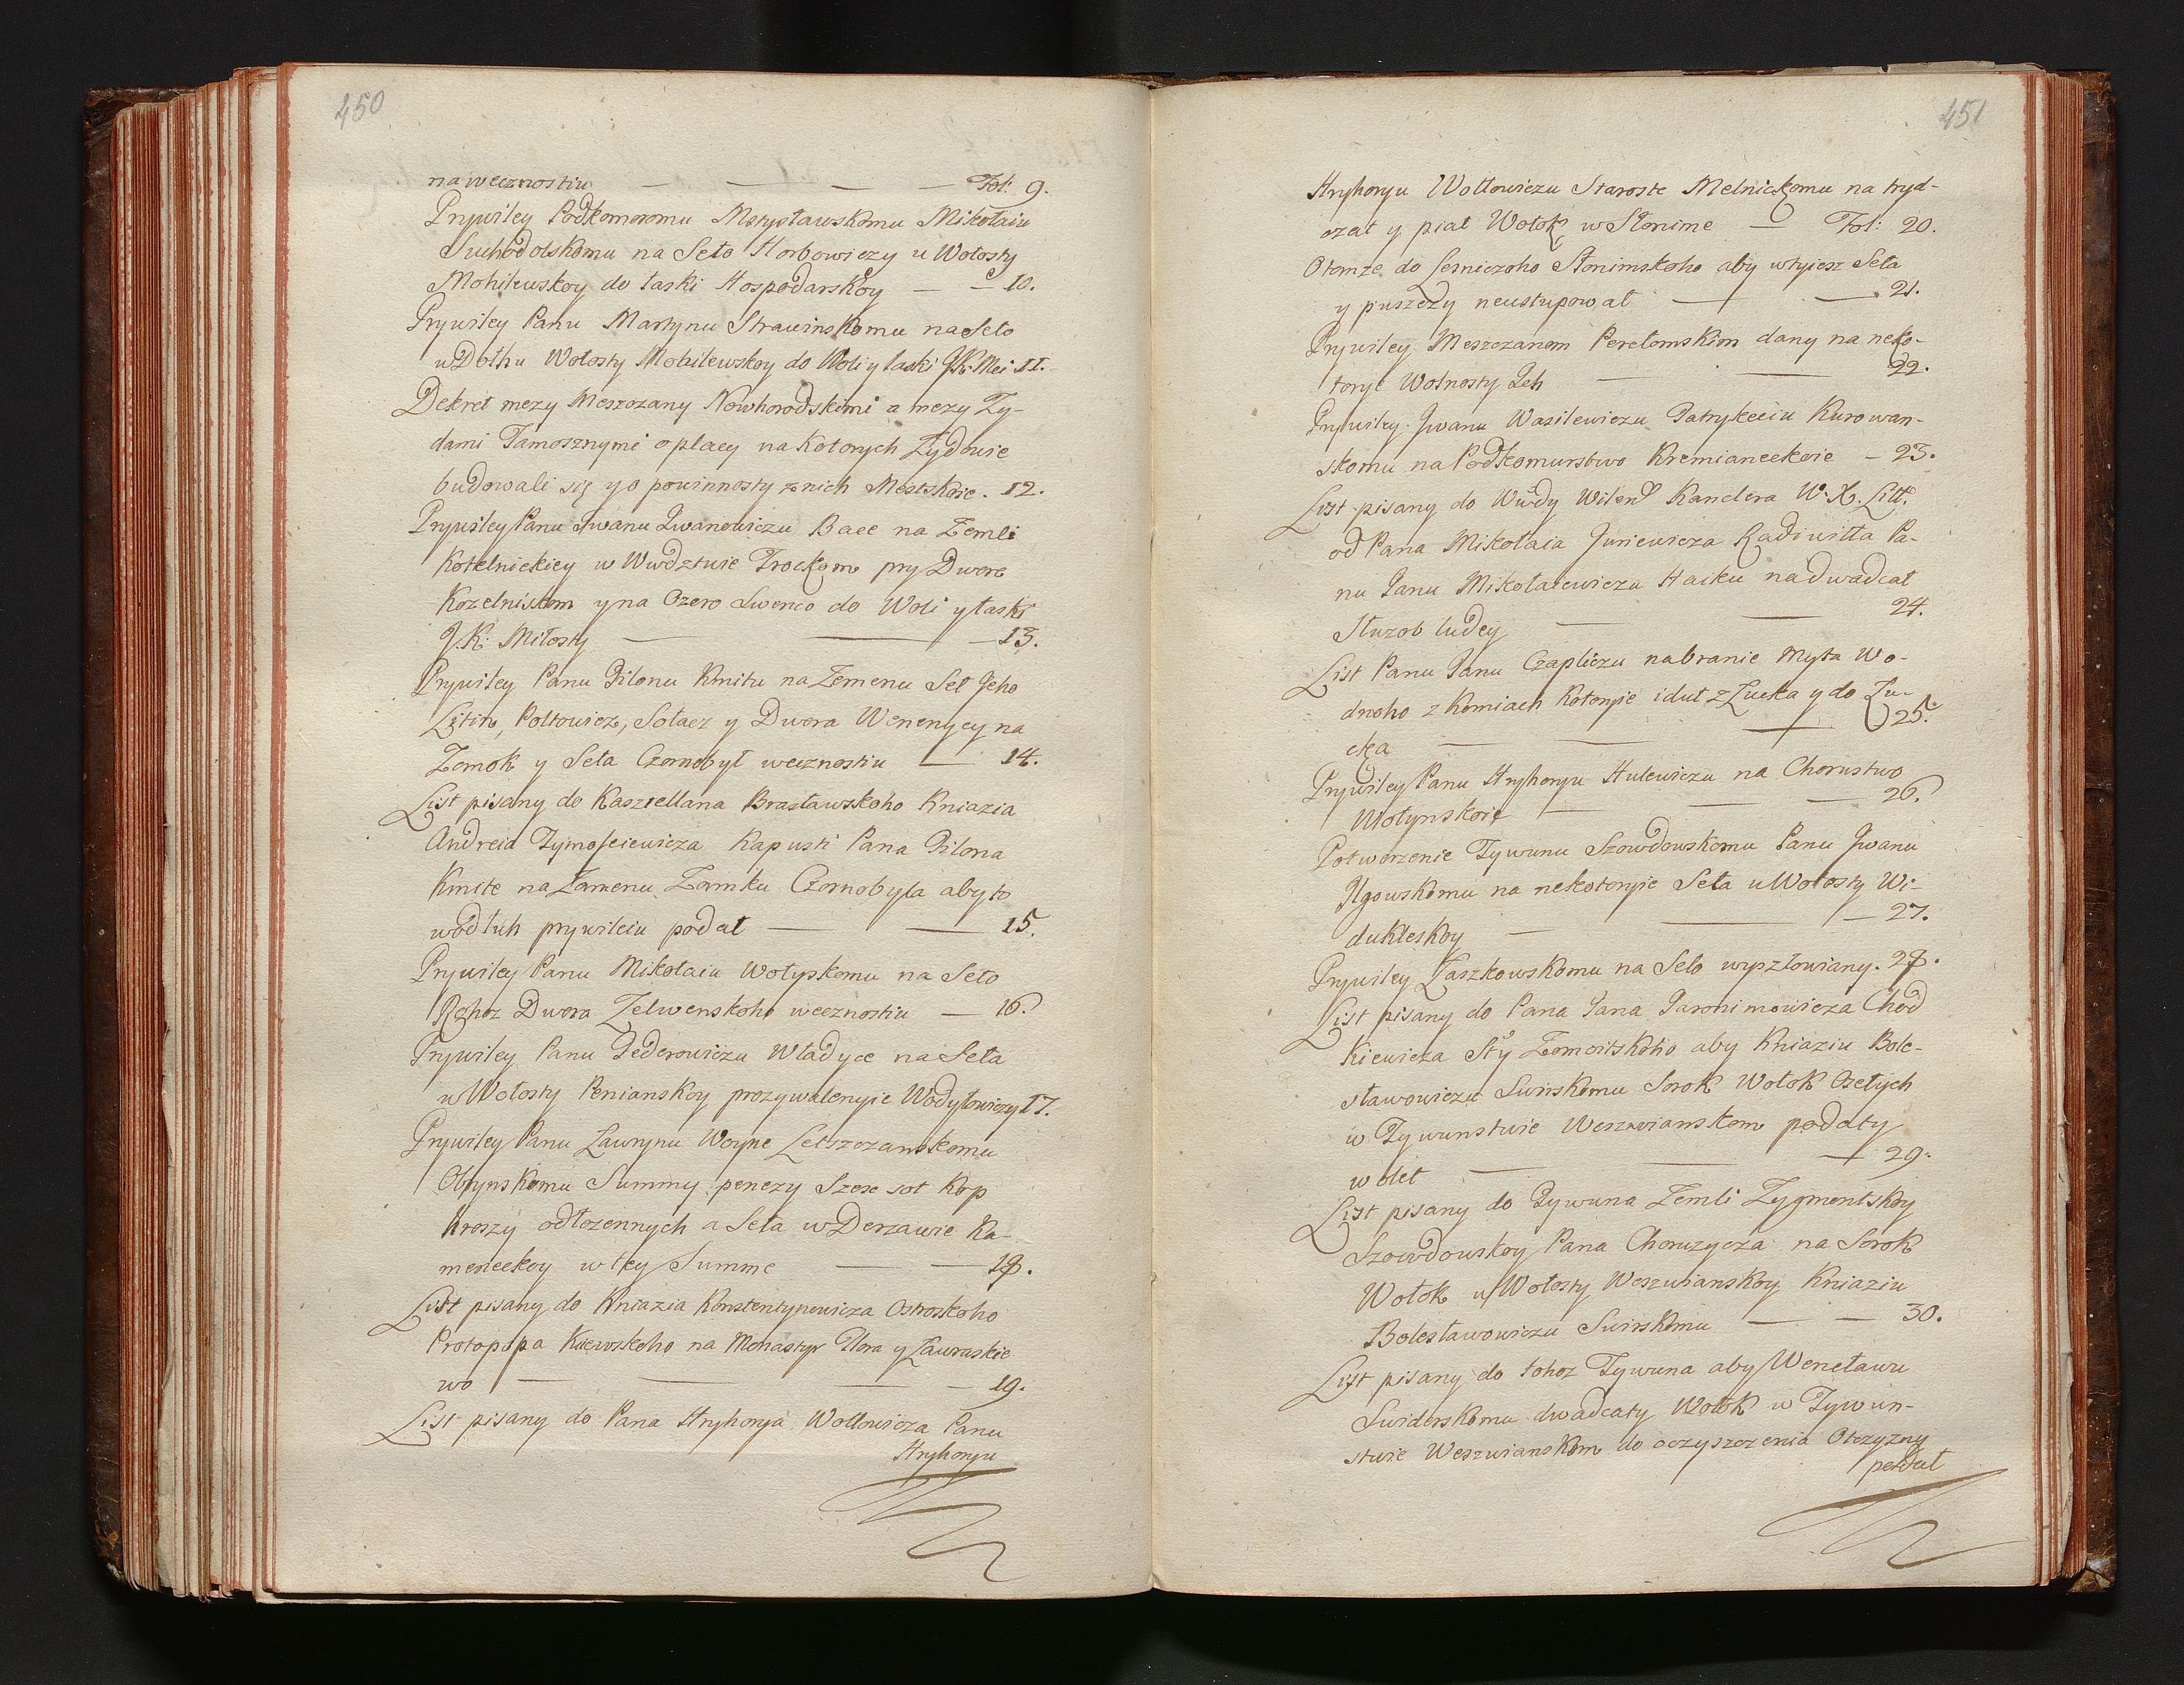 450
na wecznostiu — — — — Fol: 9.
Prywiley Podkomoromu Mstysławskomu Mikołaiu
Suchodolskomu na Seło Horbowiczy u Wołosty
Mohilewskoy do łaski Hospodarskoy — — 10.
Prywiley Panu Martynu Strawinskomu na Seło
w Dołhu Wołosty Mohilewskoy do Woli y łaski JK Mei 11.
Dekret mezy Meszczany Nowhorodskimi a mezy Zy-
dami Tamosznymi o placy na kotorych Zydowie
budowali się y o powinnosty z nich Mestskoie. 12.
Prywiley Panu Iwanu Iwanowiczu Bace na Zemli
Kotelnickiey w Wwdztwie Trockom pry Dwore
Kozelniskom y na Ozero Swenco do Woli y łaski
J.K: Miłosty — — — 13.
Prywiley Panu Filonu Kmitu na Zemenu Seł Jeho
Litin, Połtowicz, Sołacz y Dwora Wenenycy na
Zomok y Seła Czornobył wecznostiu — 14.
List pisany do Kasztellana Brasławskoho Kniazia
Andreia Tymofeiewicza Kapusti Pana Filona
Kmite na Zamenu Zamku Czornobyla aby to
wodłuh prywileiu podał — — 15.
Prywiley Panu Mikołaiu Wołyskomu na Seło
Rohoz Dwora Zelwenskoho wecznostiu — 16.
Prywiley Panu Federowiczu Władyce na Seła
u Wołosty Penianskoy prozywalenyie Wodyłowiczy 17.
Prywiley Panu Ławrynu Woyne Letszczanskomu
Obłynskomu Summy penezy Szesc sot kop
hroszy odłozennych a Seła w Derzawie Ka-
meneckoy w tey Summe — — 18.
List pisany do Kniazia Konstentynowicza Ostroskoho
Protopopa Kiewskoho na Monastyr Flora y Ławraskie
wo — — — — 19.
List pisany do Pana Hryhorya Wołłowicza Panu
Hryhoryu
451
Hryhoryu Wołłowiczu Staroste Melnickomu na tryd-
czat y piat Wołok w Słonime — Fol: 20.
Otomze do Lesniczoho Słonimskoho aby wtyiesz Seła
y puszczy neustupował — — 21.
Prywiley Meszczanom Perełomskim dany na neko-
toryie Wolnosty Jch — — 22.
Prywiley Jwanu Wasilewiczu Patrykeiu Kurowan-
skomu na Podkomurstwo Kremianeckoie — 23.
List pisany do Wwdy Wilen Kanclera W. X. Litt.
od Pana Mikołaia Juriewicza Radiwiłła Pa-
nu Janu Mikołaiewiczu Haiku na dwadcat
Słuzob ludey — — 24.
List Panu Janu Czapliczu na branie Myta Wo-
dnoho z Komiach kotoryie idut z Łucka y do Łu-
cka — — — 25.
Prywiley Panu Hryhoryu Hulewiczu na Chorustwo
Wołynskoie — — — 26.
Potworzenie Tywunu Szowdowskomu Panu Jwanu
Ilgowskomu na nekotoryie Seła u Wołosty Wi-
dukleskoy — — — 27.
Prywiley Łaszkowskomu na Selo wyszłowiany. 28.
List pisany do Pana Jana Jaronimowicza Chod
kiewicza Sty Zomoitskoho aby Kniaziu Bole-
sławowiczu Swirskomu Sorok Wołok Osełych
w Tywunstwie Weszwianskom podaty
w olet — — — 29.
List pisany do Tywuna Zemli Zygmontskoy
Szowdowskoy Pana Choruzycza na Sorok
Wołok u Wołosty Weszwianskoy Kniaziu
Bolesławowiczu Swirskomu — — 30.
List pisany do tohoz Tywuna aby Wencławu
Swiderskomu dwadcaty Wołok w Tywun-
stwie Weszwianskom do oczyszczenia Otczyzny
podał